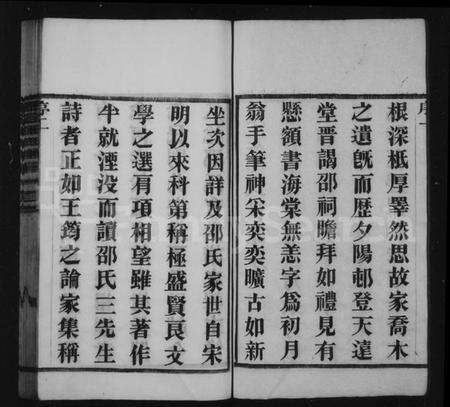 根深柢厚睪然思故家喬木
之遺旣而歴夕陽邨登天遠
堂晋謁邵祠瞻拜如禮見有
懸額書海棠無恙字爲初月
翁手筆神采奕奕曠古如新
坐次因詳及邵氏家世自宋
明以來科第稱極盛賢良文
學之選肩項相望雖其著作
半就湮没而讀邵氏三先生
詩者正如王筠之論家集稱